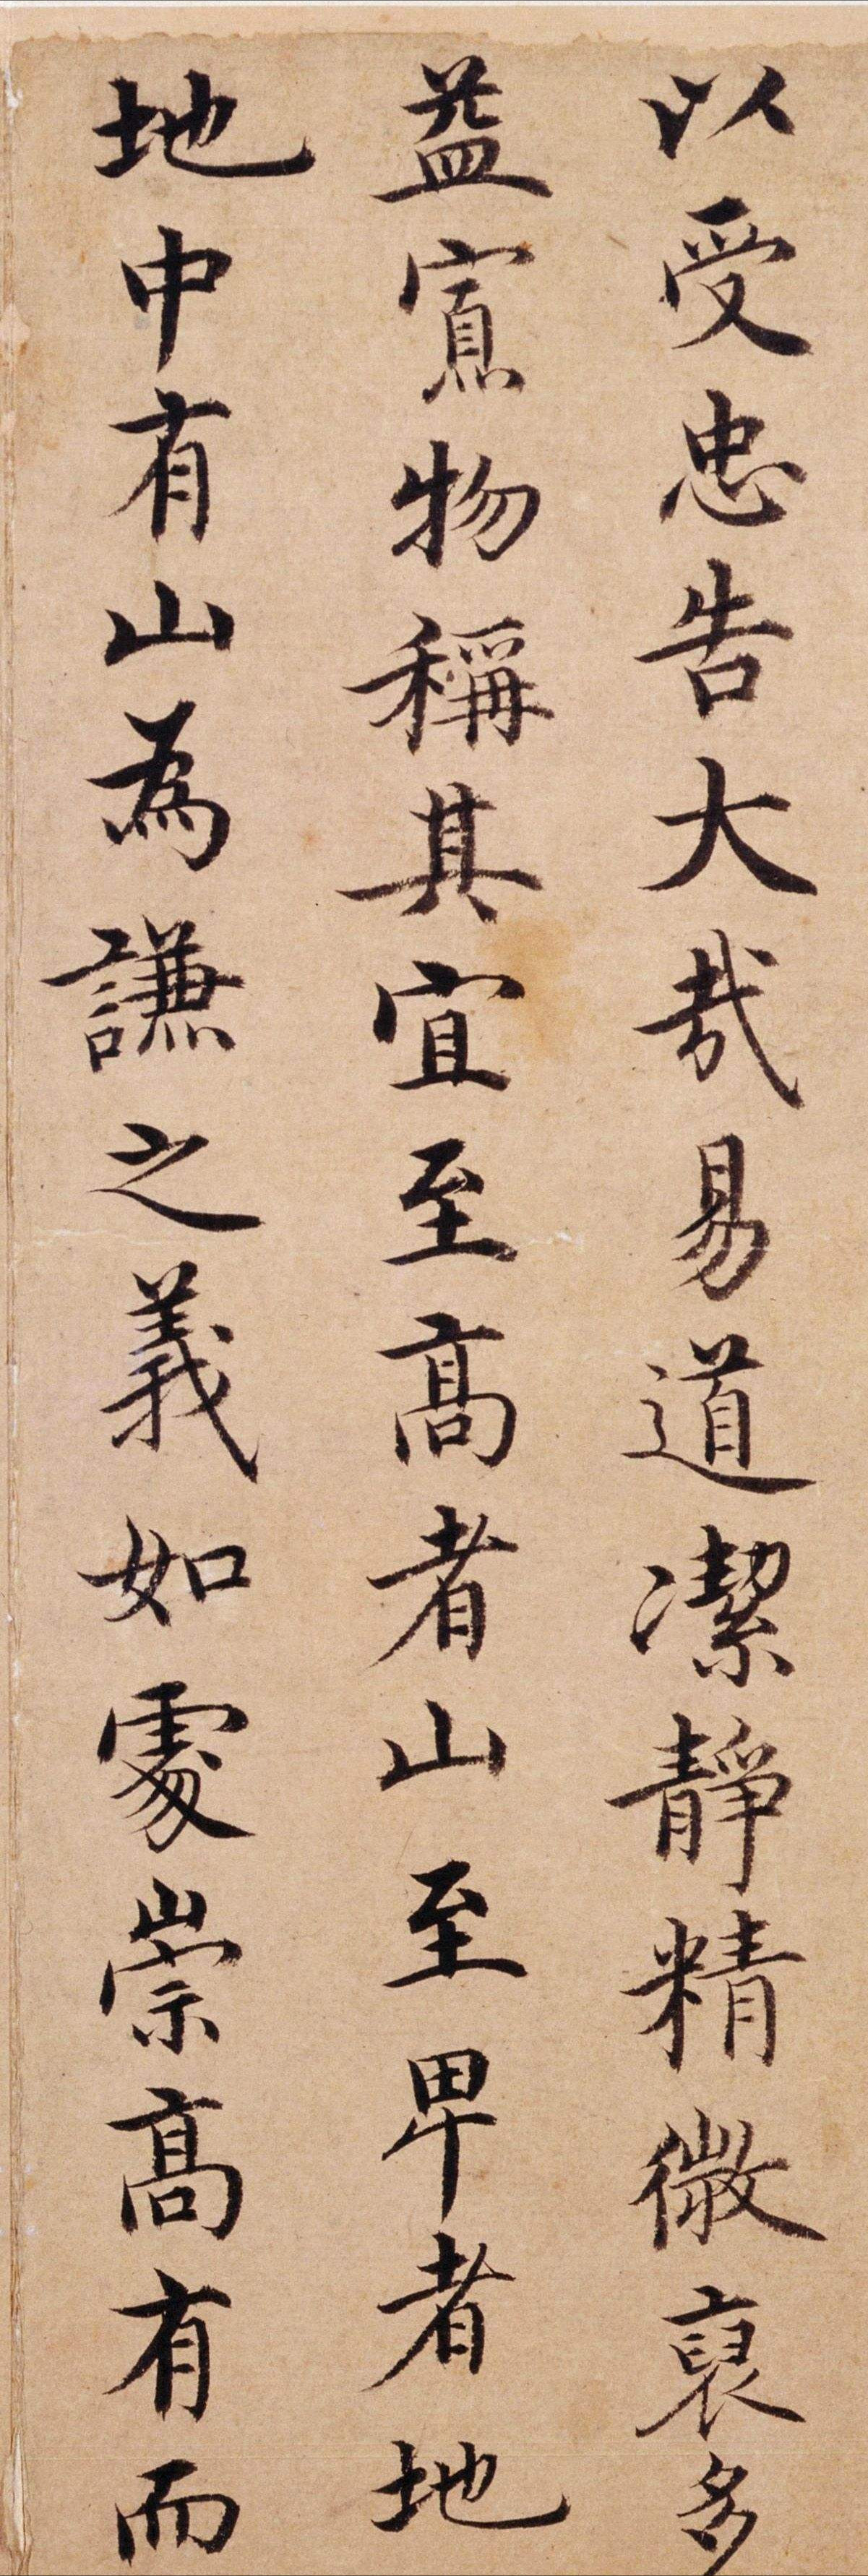 以受忠告大哉易道潔靜精微裒多
益寡物稱其宜至高者山至卑者地
地中有山為謙之義如處崇高有而